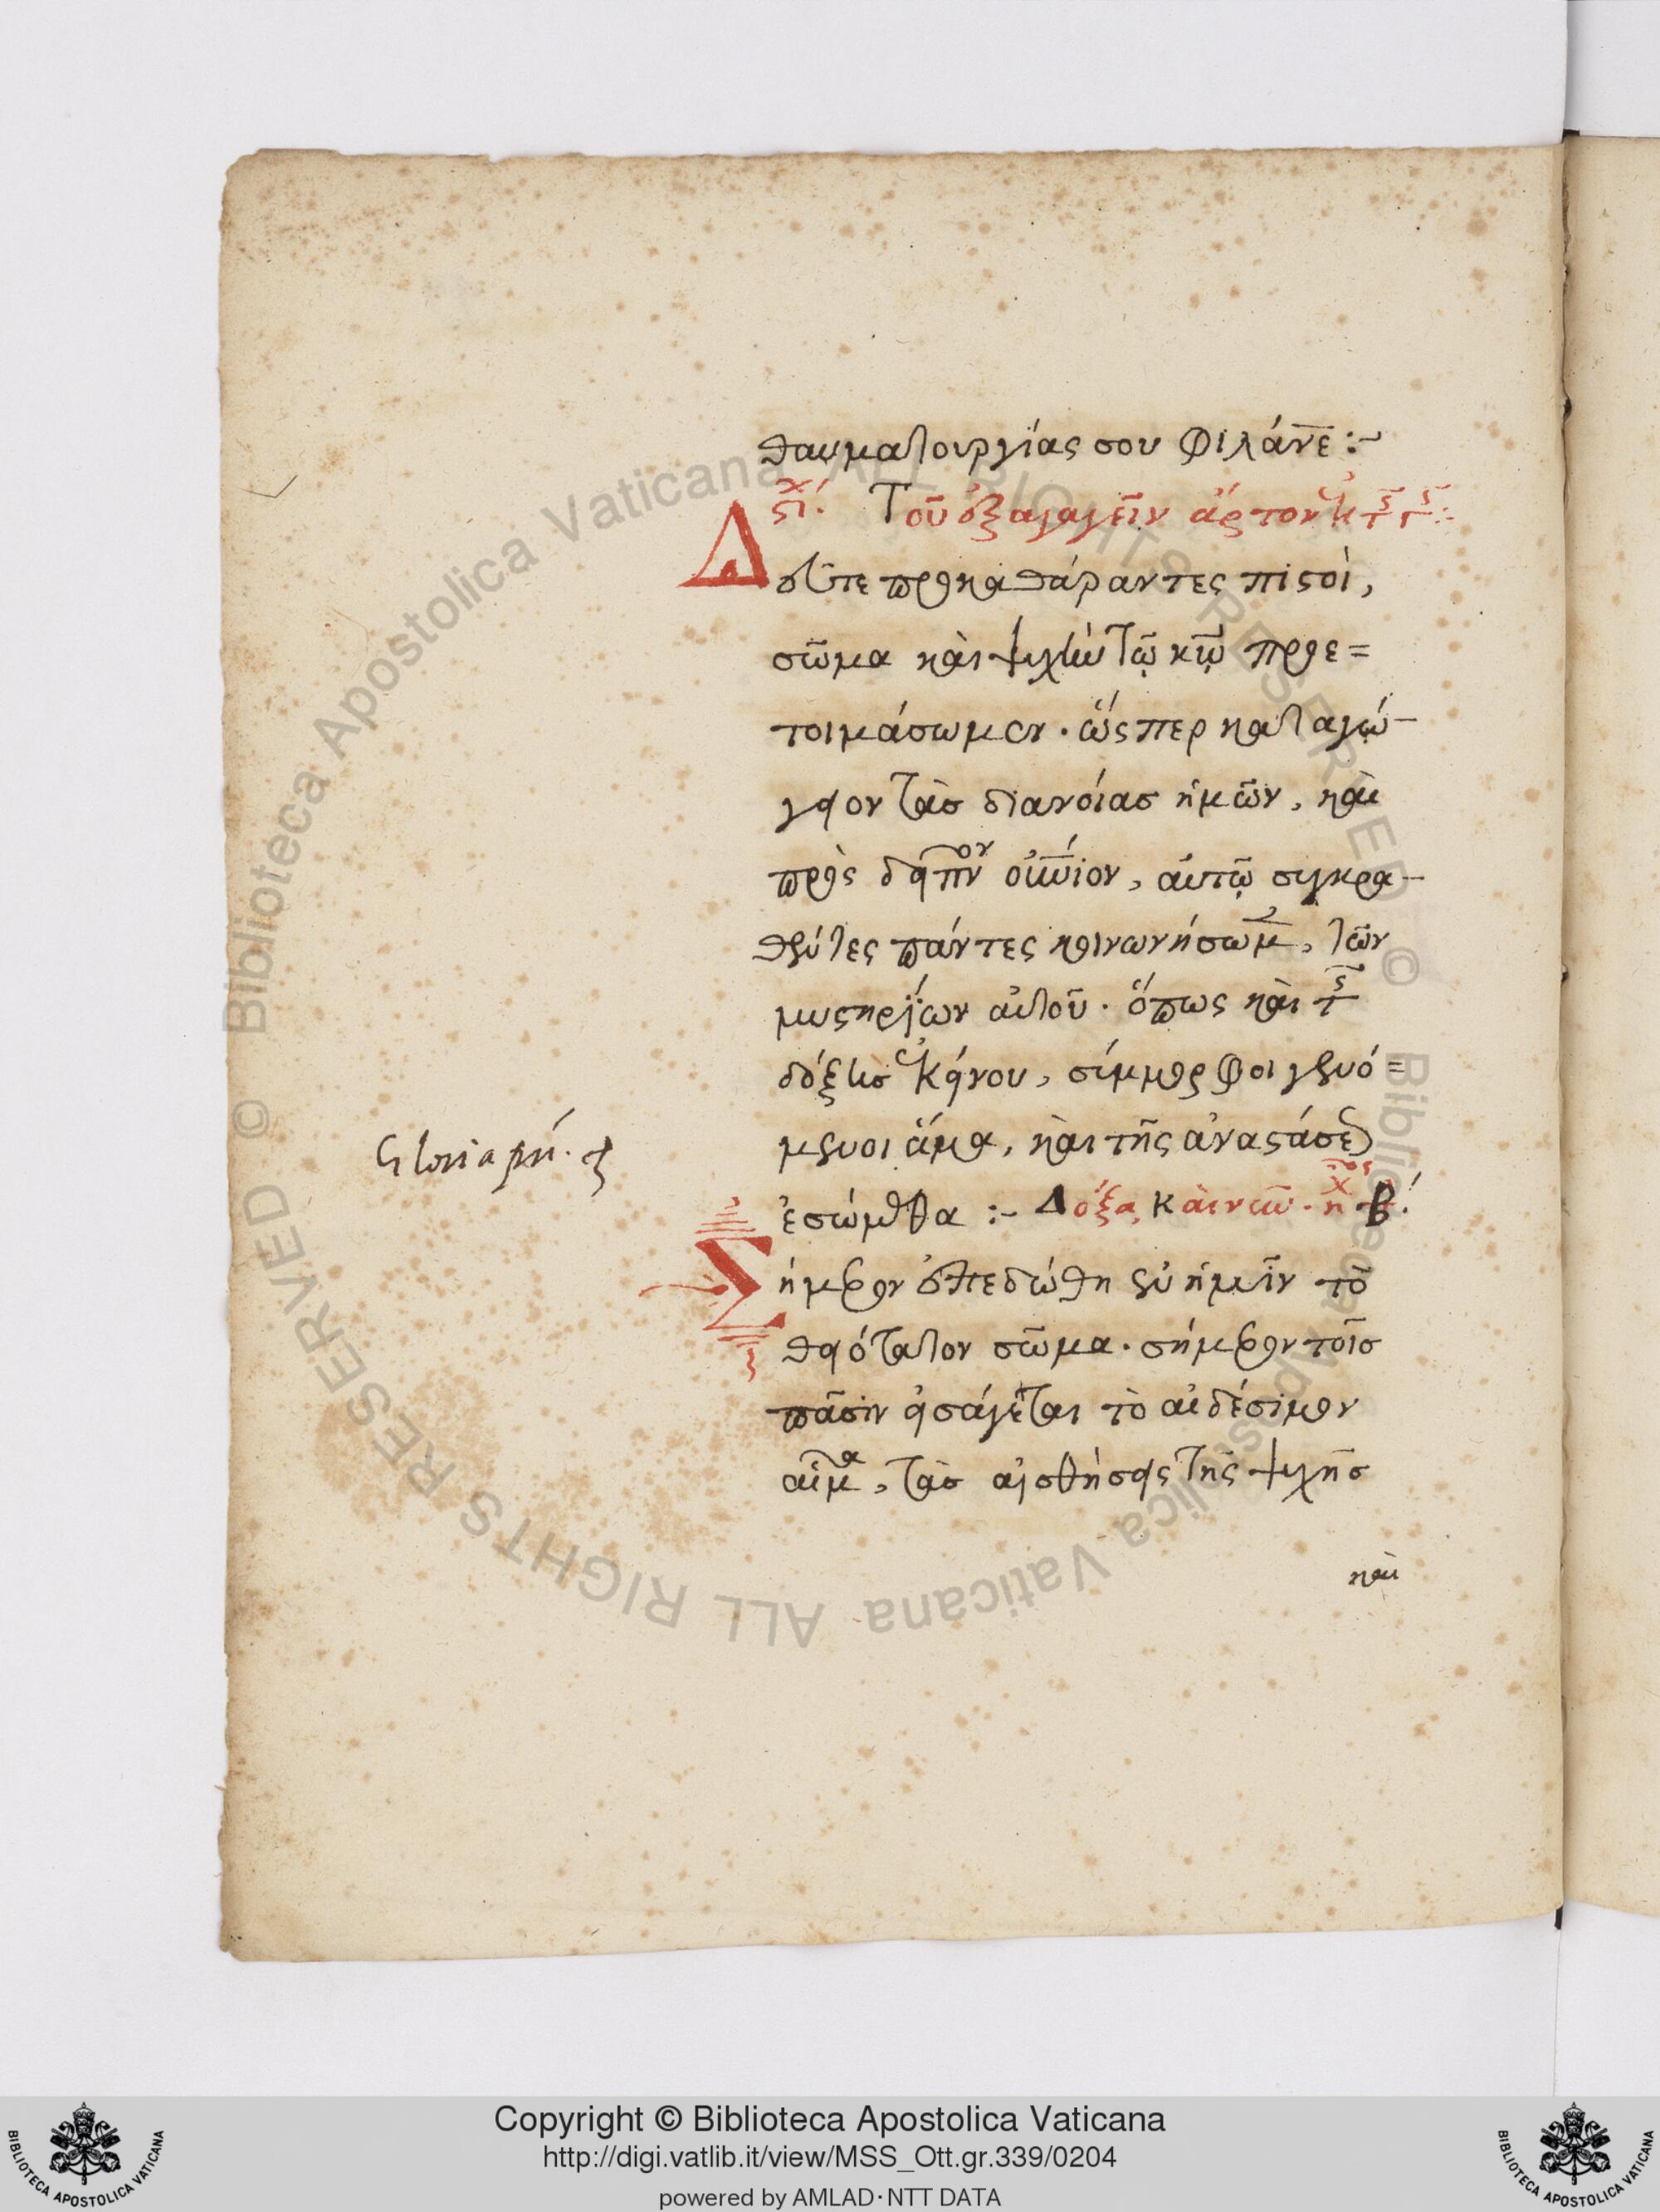 θαυματουργίας σου φιλάνε :~
στι΄. Τοῦ ἐξαγαγεῖν ἄρτον ἐκ τς γς :
Δεῦτε προκαθάραντες πιστοὶ,
σῶμα καὶ ψυχὴν τῷ κῷ προε=
τοιμάσωμεν · ὥσπερ καταγώ-
γειον τὰς διανοίας ἡμῶν, καὶ
πρὸς δεῖπνον οὐνίον, αὐτῷ συγκρα-
θέντες πάντες κοινωνήσωμ, τῶν
μυστηρίων αὐτοῦ · ὅπως καὶ τς
δόξης ἐκείνου, σύμμορφοι γενό=
μενοι ἅμα, καὶ τῆς ἀναστάσεως
ἐσώμεθα :~ Δόξα, καὶ νῦν · ἦχος β΄.
Gloria pri. &
Σήμερον ἐπεδόθη ἐν ἡμῖν τὸ
θειότατον σῶμα · σήμερον τοῖς
πᾶσιν εἰσάγεται τὸ αἰδέσιμον
αἷμα, τὰς αἰσθήσεις τῆς ψυχῆς
καὶ
© Biblioteca Apostolica Vaticana ALL RIGHTS RESERVED © Biblioteca Apostolica Vaticana ALL RIGHTS RESERVED
Copyright © Biblioteca Apostolica Vaticana
http://digi.vatlib.it/view/MSS_Ott.gr.339/0204
powered by AMLAD·NTT DATA
BIBLIOTECA APOSTOLICA VATICANA
BIBLIOTECA APOSTOLICA VATICANA